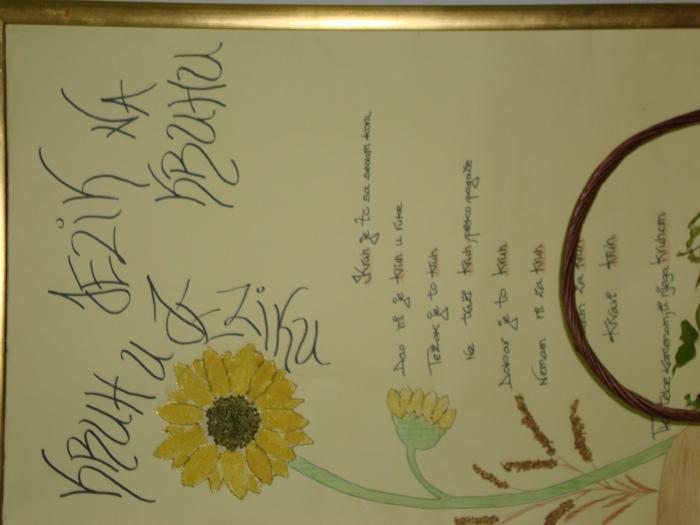 KRUH U JEZIKU
JEZIK NA KRUHU
Kruh je to sa sedam kora
Dao mi je kruh u ruke
Težak je to kruh
Ne traži kruh, preko pogače
Dobar je to kruh
Nemam ni za kruh
za kruh
kruh
tebe kamenom, ti njega kruhom